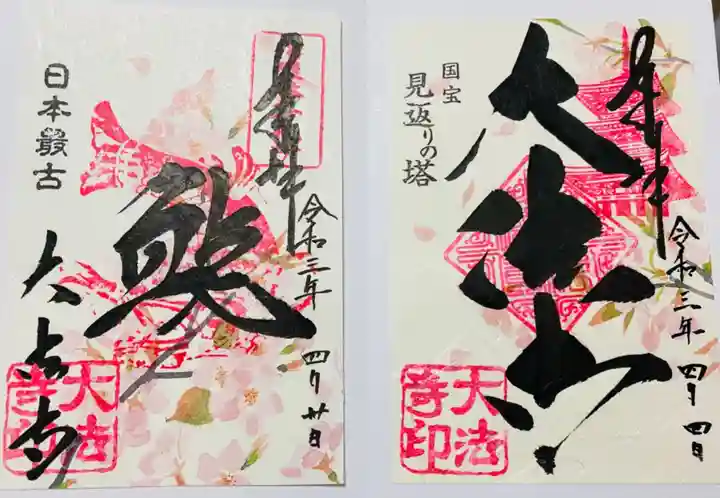 奉拝
令和三年 四月廿日
日本最古
大法寺
大法寺印
奉拝
令和三年 四月四日
大法寺
国宝
見返りの塔
大法寺印